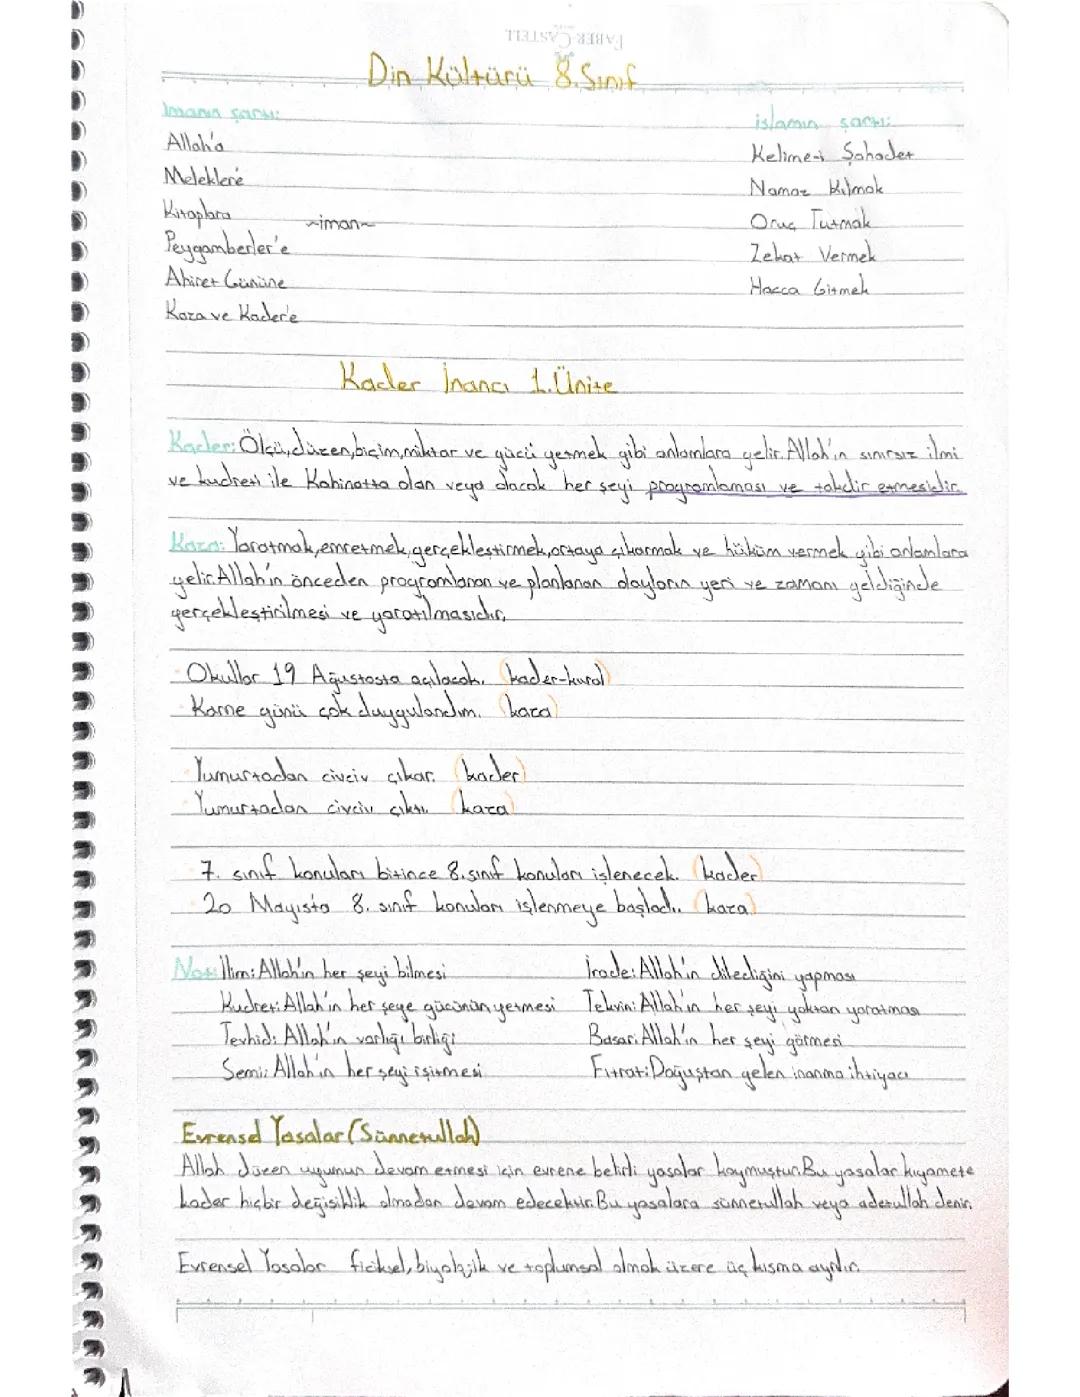 FABER CASTELL
Din Kültürü 8.Sınıf
İmanın şartı:
Allah'a
Meleklere
Kitaplara
~iman~
Peygamberler'e
Ahiret Gününe
Kaza ve Kader'e
islamın şartı:
Kelime-i Şahadet
Namaz Kılmak
Oruç Tutmak
Zekat Vermek
Hacca Gitmek
Kader İnancı 1.Ünite
Kader: Ölçü,düzen,biçim,miktar ve gücü yetmek gibi anlamlara gelir.Allah'ın sınırsız ilmi
ve kudreti ile Kahinatta olan veya olacak her şeyi programlaması ve takdir etmesidir.
Kaza: Yaratmak,emretmek,gerçekleştirmek,ortaya çıkarmak ve hüküm vermek gibi anlamlara
gelir.Allah'ın önceden programlanan ve planlanan olayların yeri ve zamanı geldiğinde
gerçekleştirilmesi ve yaratılmasıdır.
- Okullar 19 Ağustosta açılacak. (kader-kural)
- Karne günü çok duygulandım. (kaza)
- Yumurtadan civciv çıkar. (kader)
- Yumurtadan civciv çıktı. (kaza)
- 7. sınıf konuları bitince 8.sınıf konuları işlenecek. (kader)
- 20 Mayıs'ta 8. sınıf konuları işlenmeye başladı.. (kaza)
Not: İlim: Allah'ın her şeyi bilmesi
Kudret: Allah'ın her şeye gücünün yetmesi
Tevhid: Allah'ın varlığı birliği
Semi: Allah'ın her şeyi işitmesi
İrade: Allah'ın dilediğini yapması
Tekvin: Allah'ın her şeyi yoktan yaratması
Basar: Allah'ın her şeyi görmesi
Fıtrat: Doğuştan gelen inanma ihtiyacı
Evrensel Yasalar (Sünnetullah)
Allah düzen uyumun devam etmesi için evrene belirli yasalar koymuştur.Bu yasalar kıyamete
kader hiçbir değişiklik olmadan devam edecektir.Bu yasalara sünnetullah veya adetullah denir.
Evrensel Yasalar fiziksel,biyolojik ve toplumsal olmak üzere üç kısma ayrılır.